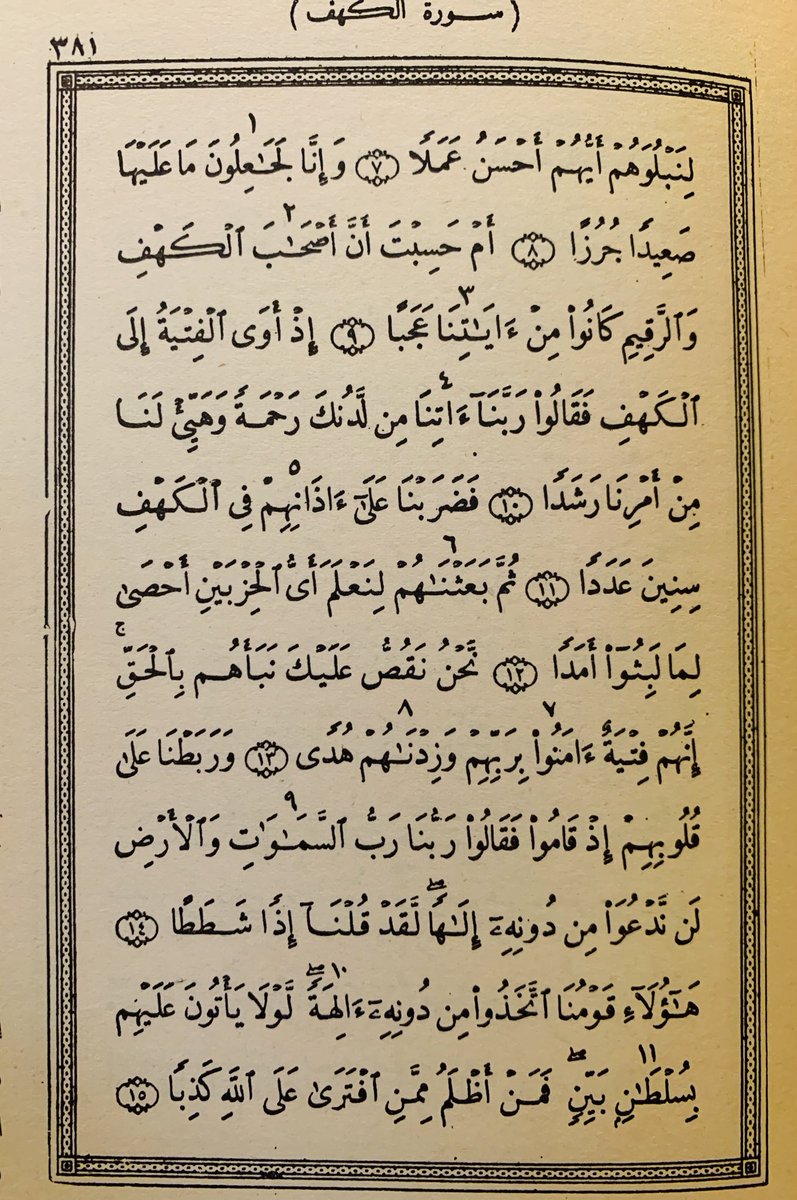 ( سورة الكهف )
٣٨١
١
لِنَبْلُوَهُمْ أَيُّهُمْ أَحْسَنُ عَمَلًا ٧ وَإِنَّا لَجَٰعِلُونَ مَا عَلَيْهَا
٢
صَعِيدًا جُرُزًا ٨ أَمْ حَسِبْتَ أَنَّ أَصْحَٰبَ ٱلْكَهْفِ
٣
وَٱلرَّقِيمِ كَانُوا۟ مِنْ ءَايَٰتِنَا عَجَبًا ٩ إِذْ أَوَى ٱلْفِتْيَةُ إِلَى
٤
ٱلْكَهْفِ فَقَالُوا۟ رَبَّنَآ ءَاتِنَا مِن لَّدُنكَ رَحْمَةً وَهَيِّئْ لَنَا
٥
مِنْ أَمْرِنَا رَشَدًا ١٠ فَضَرَبْنَا عَلَىٰٓ ءَاذَانِهِمْ فِى ٱلْكَهْفِ
٦
سِنِينَ عَدَدًا ١١ ثُمَّ بَعَثْنَٰهُمْ لِنَعْلَمَ أَىُّ ٱلْحِزْبَيْنِ أَحْصَىٰ
لِمَا لَبِثُوٓا۟ أَمَدًا ١٢ نَّحْنُ نَقُصُّ عَلَيْكَ نَبَأَهُم بِٱلْحَقِّ ۚ
٧ ٨
إِنَّهُمْ فِتْيَةٌ ءَامَنُوا۟ بِرَبِّهِمْ وَزِدْنَٰهُمْ هُدًى ١٣ وَرَبَطْنَا عَلَىٰ
٩
قُلُوبِهِمْ إِذْ قَامُوا۟ فَقَالُوا۟ رَبُّنَا رَبُّ ٱلسَّمَٰوَٰتِ وَٱلْأَرْضِ
لَن نَّدْعُوَا۟ مِن دُونِهِۦٓ إِلَٰهًا ۖ لَّقَدْ قُلْنَآ إِذًا شَطَطًا ١٤
١٠
هَٰٓؤُلَآءِ قَوْمُنَا ٱتَّخَذُوا۟ مِن دُونِهِۦٓ ءَالِهَةً ۖ لَّوْلَا يَأْتُونَ عَلَيْهِم
١١
بِسُلْطَٰنٍۭ بَيِّنٍ ۖ فَمَنْ أَظْلَمُ مِمَّنِ ٱفْتَرَىٰ عَلَى ٱللَّهِ كَذِبًا ١٥